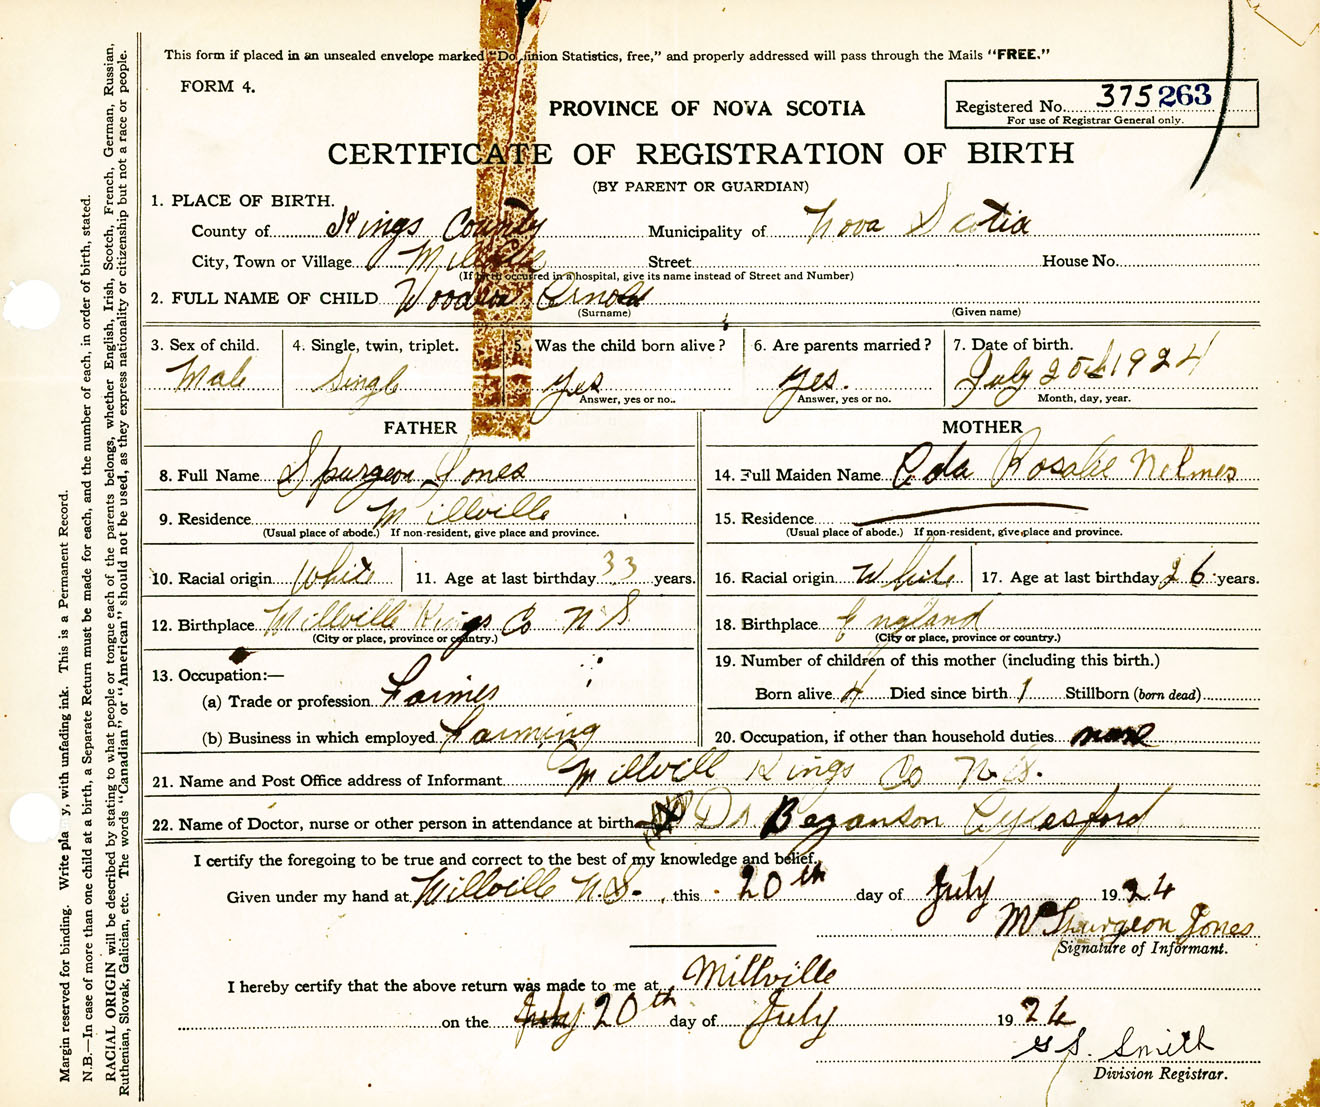 This form if placed in an unsealed envelope marked "Dominion Statistics, free," and properly addressed will pass through the Mails "FREE."
FORM 4.
PROVINCE OF NOVA SCOTIA
Registered No. 375263
For use of Registrar General only.
CERTIFICATE OF REGISTRATION OF BIRTH
(BY PARENT OR GUARDIAN)
1. PLACE OF BIRTH.
County of Kings County Municipality of Nova Scotia
City, Town or Village Millville Street House No.
(If birth occurred in a hospital, give its name instead of Street and Number)
2. FULL NAME OF CHILD Woodrow Arnold
(Surname) (Given name)
3. Sex of child. 4. Single, twin, triplet. 5. Was the child born alive? 6. Are parents married? 7. Date of birth.
Male Single yes yes. July 1924
Answer, yes or no.. Answer, yes or no. Month, day, year.
FATHER MOTHER
8. Full Name Spurgeon Jones 14. Full Maiden Name Eda Rosalie Nelmes
9. Residence Millville 15. Residence
(Usual place of abode.) If non-resident, give place and province. (Usual place of abode.) If non-resident, give place and province.
10. Racial origin White 11. Age at last birthday 33 years. 16. Racial origin White 17. Age at last birthday 26 years.
12. Birthplace Millville Kings Co N S 18. Birthplace England
(City or place, province or country.) (City or place, province or country.)
13. Occupation:— 19. Number of children of this mother (including this birth.)
(a) Trade or profession Farmer Born alive 4 Died since birth 1 Stillborn (born dead)
(b) Business in which employed Farming 20. Occupation, if other than household duties none
21. Name and Post Office address of Informant Millvill Kings Co N.S.
22. Name of Doctor, nurse or other person in attendance at birth Dr Beganson Aylesford
I certify the foregoing to be true and correct to the best of my knowledge and belief.
Given under my hand at Millville N.S. , this 20th day of July 1924
Mr Spurgeon Jones
Signature of Informant.
I hereby certify that the above return was made to me at Millville
on the July 20th day of July 1924
G S. Smith
Division Registrar.
Margin reserved for binding. Write pla y, with unfading ink. This is a Permanent Record.
N.B.—In case of more than one child at a birth, a Separate Return must be made for each, and the number of each, in order of birth, stated.
RACIAL ORIGIN will be described by stating to what people or tongue each of the parents belongs, whether English, Irish, Scotch, French, German, Russian,
Ruthenian, Slovak, Galician, etc. The words "Canadian" or "American" should not be used, as they express nationality or citizenship but not a race or people.